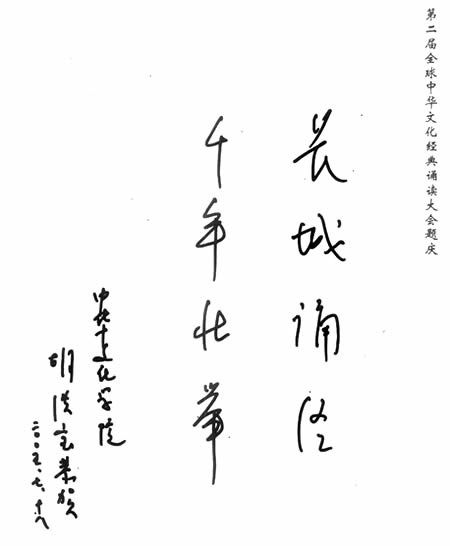 第二届全球中华文化经典诵读大会题庆
长城诵经
千年壮举
中华文化学院
胡
二〇〇五、七、十八